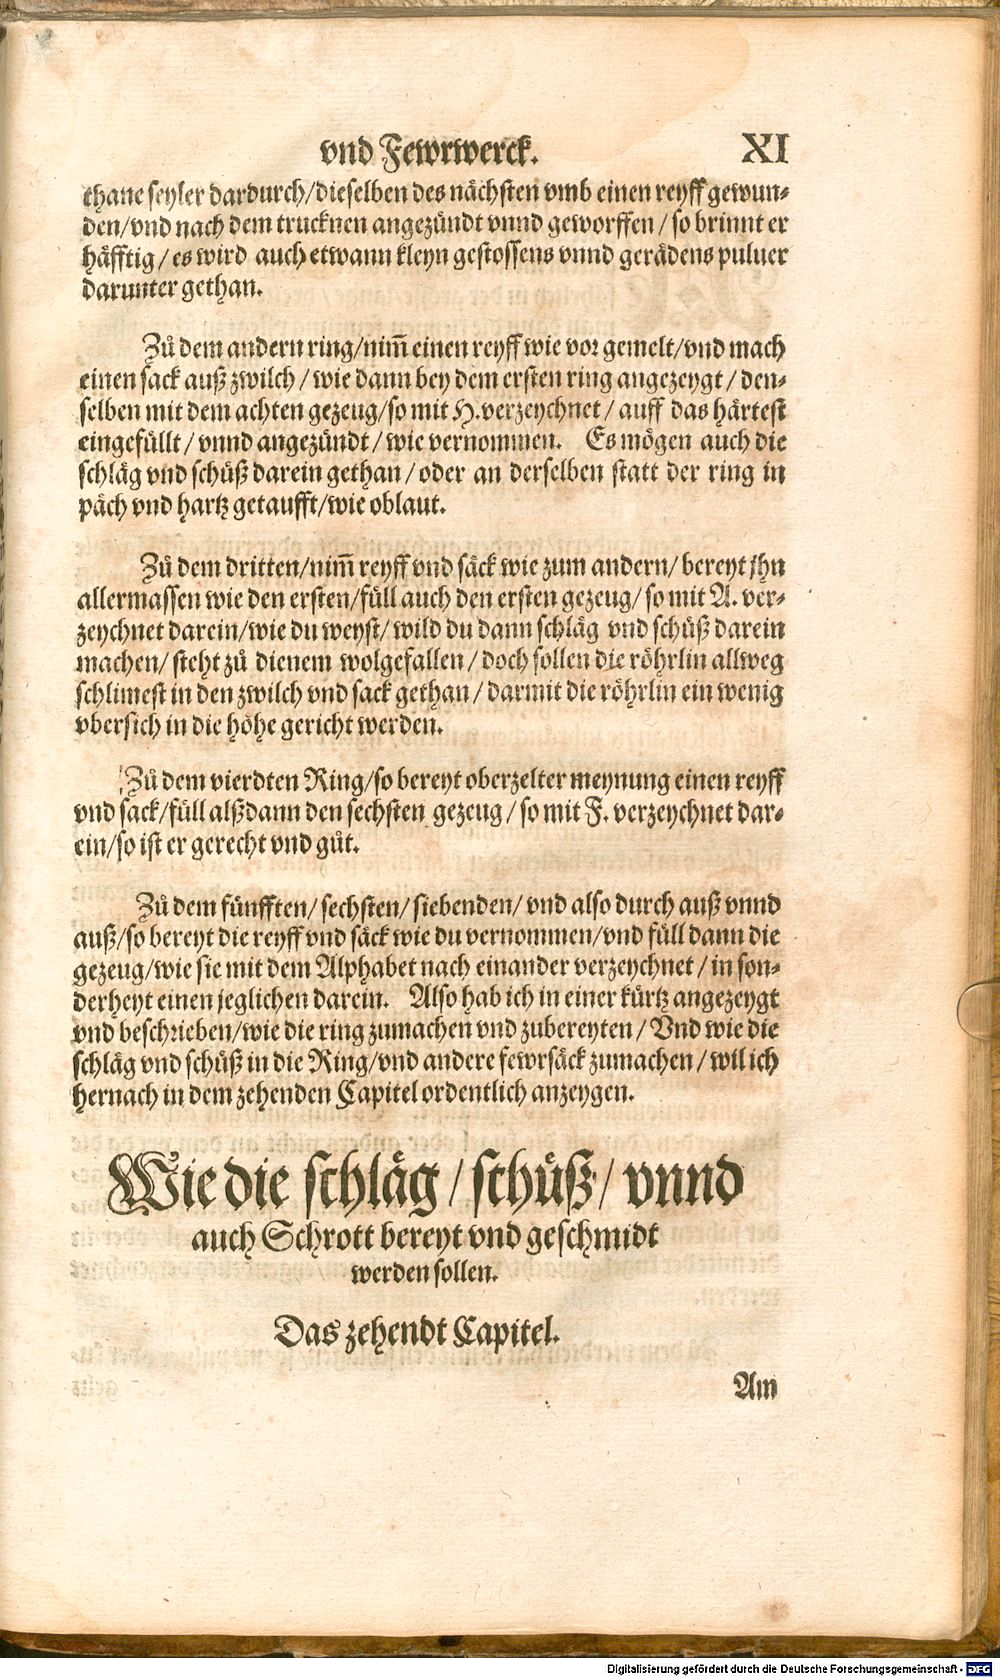 vnd Fewrwerck. XI
thane seyler dardurch/dieselben des nächsten vmb einen reyff gewun-
den/vnd nach dem trucknen angezündt vnnd geworffen / so brinnt er
häfftig / es wird auch etwann kleyn gestossens vnnd gerädens puluer
darunter gethan.
Zů dem andern ring/nim̃ einen reyff wie vor gemelt/vnd mach
einen sack auß zwilch / wie dann bey dem ersten ring angezeygt / den-
selben mit dem achten gezeug/so mit H. verzeychnet / auff das härtest
eingefüllt / vnnd angezündt / wie vernommen. Es mögen auch die
schläg vnd schüß darein gethan / oder an derselben statt der ring in
päch vnd hartz getaufft/wie oblaut.
Zů dem dritten/nim̃ reyff vnd säck wie zum andern/ bereyt jhn
allermassen wie den ersten/füll auch den ersten gezeug/ so mit A. ver-
zeychnet darein/wie du weyst/ wild du dann schläg vnd schüß darein
machen/ steht zů dienem wolgefallen / doch sollen die röhrlin allweg
schlimest in den zwilch vnd sack gethan / darmit die röhrlin ein wenig
vbersich in die höhe gericht werden.
Zů dem vierdten Ring/so bereyt oberzelter meynung einen reyff
vnd sack/füll alßdann den sechsten gezeug / so mit F. verzeychnet dar-
ein/so ist er gerecht vnd gůt.
Zů dem fünfften/ sechsten/ siebenden/ vnd also durch auß vnnd
auß/so bereyt die reyff vnd säck wie du vernommen/vnd füll dann die
gezeug/wie sie mit dem Alphabet nach einander verzeychnet / in son-
derheyt einen jeglichen darein. Also hab ich in einer kürtz angezeygt
vnd beschrieben/wie die ring zumachen vnd zubereyten / Vnd wie die
schläg vnd schüß in die Ring/vnd andere fewrsäck zumachen / wil ich
hernach in dem zehenden Capitel ordentlich anzeygen.
Wie die schläg / schüß / vnnd
auch Schrott bereyt vnd geschmidt
werden sollen.
Das zehendt Capitel.
Am
Digitalisierung gefördert durch die Deutsche Forschungsgemeinschaft - DFG